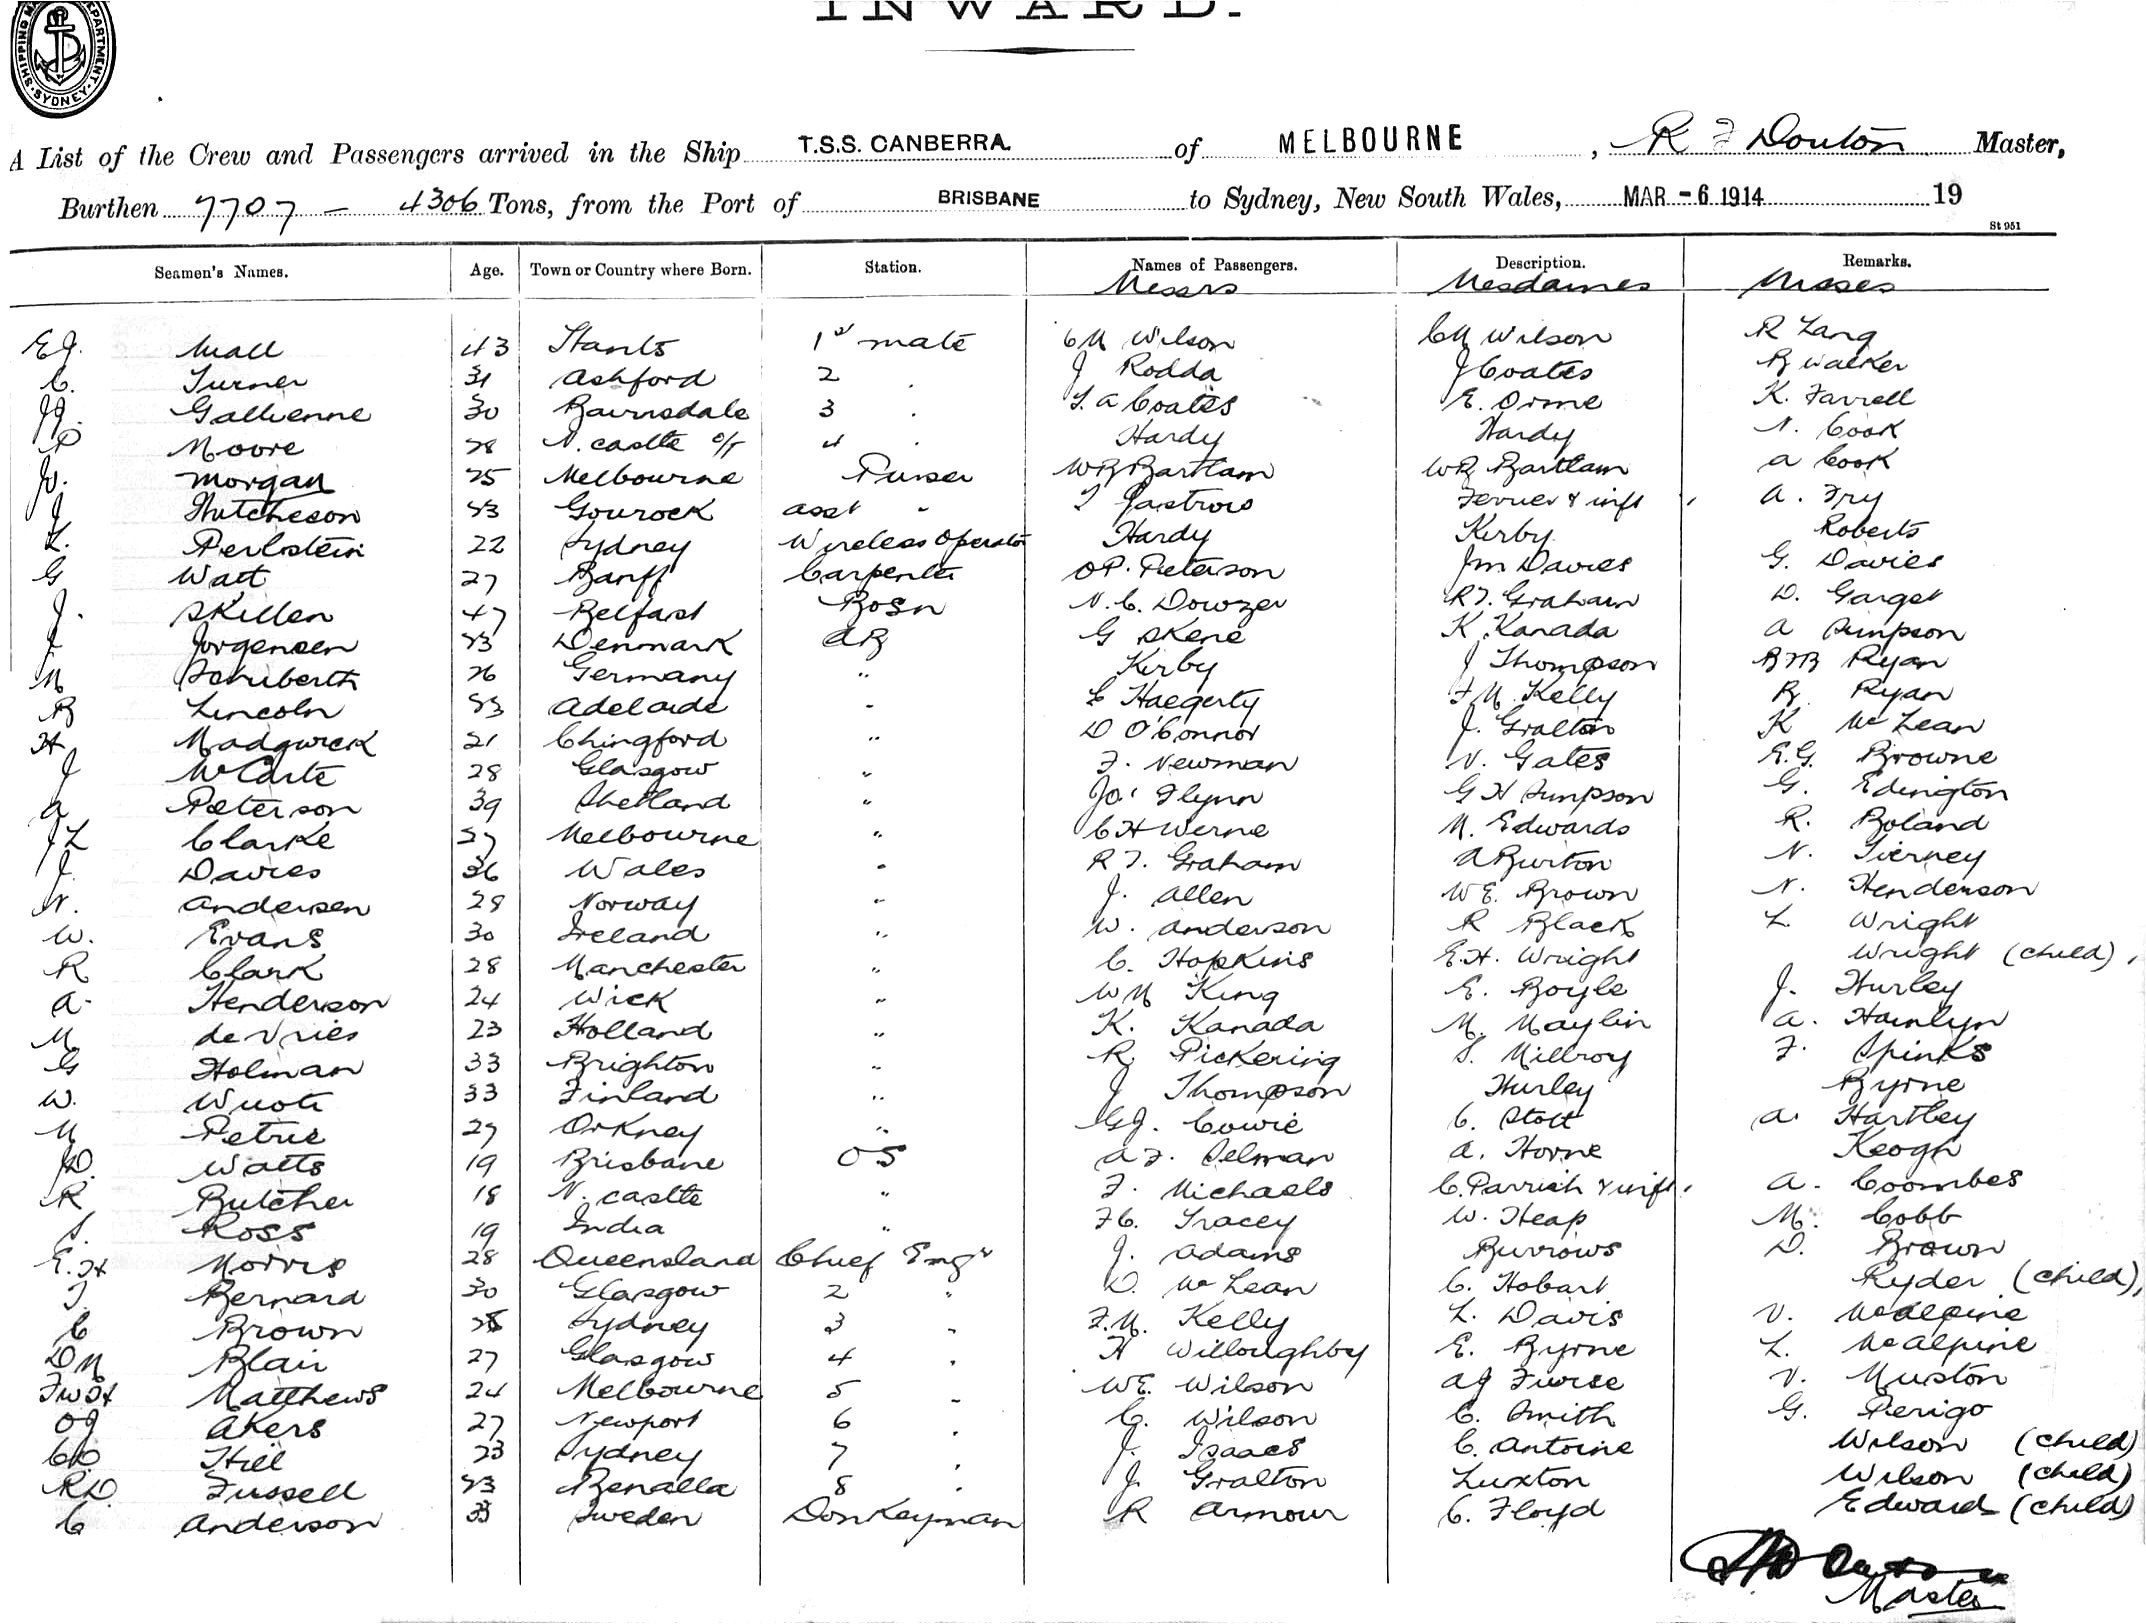 INWARD.
SHIPPING MA DEPARTMENT. SYDNEY
A List of the Crew and Passengers arrived in the Ship T.S.S. CANBERRA. of MELBOURNE, R F Douton Master,
Burthen 7707 - 4306 Tons, from the Port of BRISBANE to Sydney, New South Wales, MAR - 6 1914 19
St 951
Seamen's Names. Age. Town or Country where Born. Station. Names of Passengers. Description. Remarks.
Messrs Mesdames Misses
E J. Wall 43 Hants 1st mate C M Wilson C M Wilson R Lang
C. Turner 31 Ashford 2 . J Rodda J Coates B Walker
Gallienne 30 Bairnsdale 3 . T. A Coates E. Orme K. Farrell
P Moore 28 N. castle o/T 4 . Hardy Hardy N. Cook
Morgan 25 Melbourne Purser W B Bartlam W B Bartlam A Cook
J Hutcheson Gourock asst " Jastrow Ferrier & inft A. Fry
L. Perlstein 22 Sydney Wireless Operator Hardy Kirby Roberts
G Watt 27 Banff Carpenter O P. Peterson J M Davies G. Davies
J. Skillen 47 Belfast Bosn N. C. Dowzer R T. Graham D. Garget
J Jorgensen Denmark AB G Skene K. Kanada A Simpson
M Schuberth 26 Germany " Kirby J Thompson Ryan
B Lincoln Adelaide " C Haegerty F. M. Kelly B. Ryan
H Madgwick 21 Chingford " D O'Connor J. Gralton K McLean
J McCarte 28 Glasgow " F. Newman N. Gates E.G. Browne
A Peterson 39 Shetland " Jo' Flynn G H Simpson G. Edington
J L Clarke 27 Melbourne " C H Werne M. Edwards R. Boland
J. Davies 36 Wales " R T. Graham A Burton N. Tierney
N. Andersen 29 Norway " J. Allen W E. Brown N. Henderson
W. Evans 30 Ireland " W. Anderson R Black L Wright
R Clark 28 Manchester " C. Hopkins E.H. Wright Wright (child),
A. Henderson 24 Wick " W M King E. Boyle J. Hurley
M de Vries 23 Holland " K. Kanada M. Maylin A. Hamlyn
G Holman 33 Brighton " R Pickering S. Millroy F. Spinks
W. Wuoti 33 Finland " J Thompson Hurley Byrne
M Petrie 27 Orkney " G J. Cowie C. Stott A. Hartley
J D. Watts 19 Brisbane O S A F. Selman A. Horne Keogh
R Butcher 18 N. castle " F. Michaels C. Parrish & inft. A. Coombes
S. Ross 19 India " F C. Tracey W. Heap M. Cobb
E. H Morris 28 Queensland Chief Engr J. Adams Burrows D. Brown
T. Bernard 30 Glasgow 2 " D. McLean C. Hobart Ryder (child),
C Brown Sydney 3 " F. M. Kelly L. Davis V. McAlpine
D M Blair 27 Glasgow 4 . H Willoughby E. Byrne L. McAlpine
F W H Matthews 24 Melbourne 5 " W E. Wilson A J Furse V. Muston
O J Akers 27 Newport 6 . C. Wilson C. Smith G. Perigo
Hill 23 Sydney 7 . J. Isaacs C. Antoine Wilson (child)
R D. Fussell Benalla 8 . J. Gralton Luxton Wilson (child)
C Anderson 33 Sweden Donkeyman R Armour C. Floyd Edwards (child)
Master